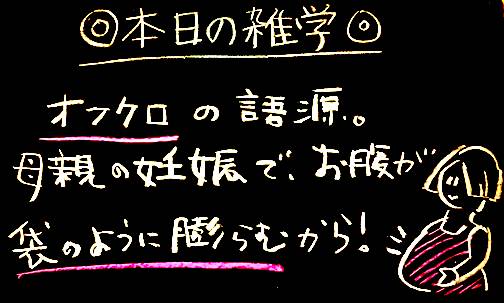 ◎本日の雑学◎
オフクロの語源。
母親の妊娠で、お腹が
袋のように膨らむから!